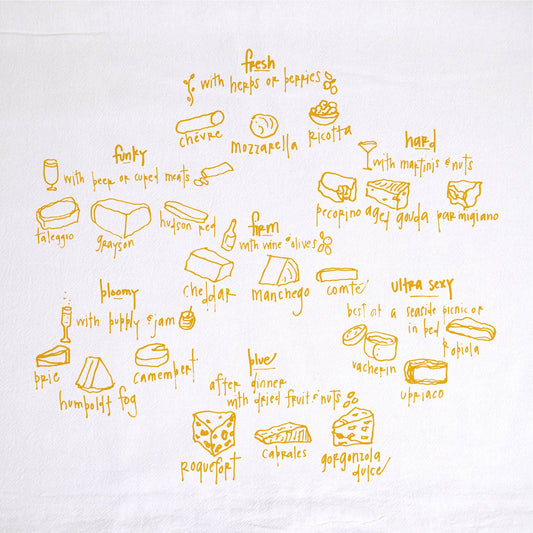 fresh
with herbs or berries
chévre
mozzarella
ricotta
funky
with beer or cured meats
taleggio
grayson
hudson red
hard
with martinis & nuts
pecorino
aged gouda
parmigiano
firm
with wine & olives
cheddar
manchego
comté
bloomy
with bubbly & jam
brie
humboldt fog
camembert
ultra sexy
best at a seaside picnic or
in bed
vacherin
robiola
ubriaco
blue
after dinner
with dried fruit & nuts
roquefort
cabrales
gorgonzola
dulce